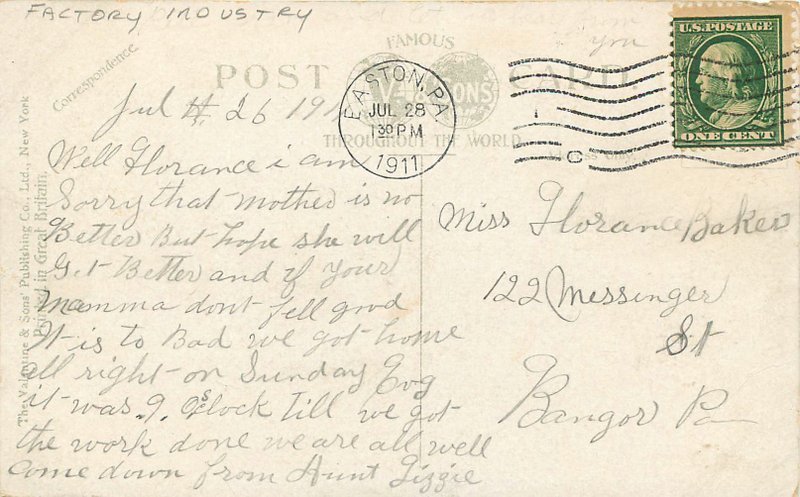 FACTORY INDUSTRY
from
you
U.S. POSTAGE
ONE CENT
Correspondence.
POST CARD.
FAMOUS
THROUGHOUT THE WORLD
EASTON, PA.
JUL 28
1 30 PM
1911
The Valentine & Sons' Publishing Co., Ltd., New York
Printed in Great Britain.
Jul 26 191
Well Florance i am
Sorry that mother is no
Better But hope she will
Get Better and if your
mamma dont fell good
It is to Bad we got home
all right on Sunday Evg
it was .9. Oclock till we got
the work done we are all well
come down from Aunt Lizzie
Miss Florance Baker
122 Messinger
St
Bangor Pa